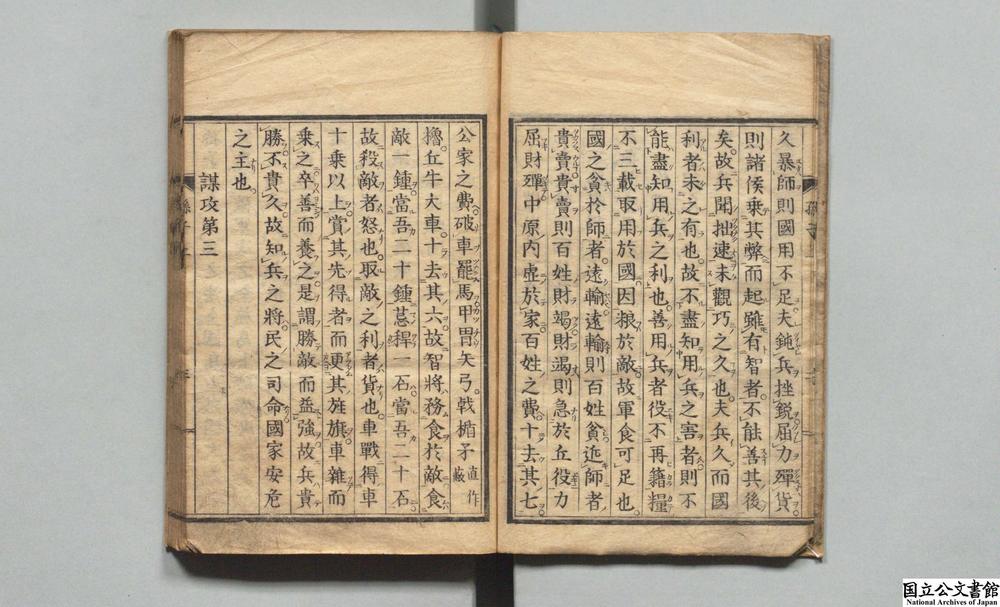 久暴師則國用不足夫鈍兵挫鋭屈力殫貨
則諸侯乗其弊而起雖有智者不能善其後
矣故兵聞拙速未觀巧之久也夫兵久而國
利者未之有也故不盡知用兵之害者則不
能盡知用兵之利也善用兵者役不再籍糧
不三載取用於國因粮於敵故軍食可足也
國之貧於師者遠輸遠輸則百姓貧近師者
貴賣貴賣則百姓財竭財竭則急於丘役力
屈財殫中原内虚於家百姓之費十去其七
公家之費破車罷馬甲冑矢弓戟楯矛直作蔽
櫓丘牛大車十去其六故智將務食於敵食
敵一鍾當吾二十鍾萁稈一石當吾二十石
故殺敵者怒也取敵之利者貨也車戰得車
十乗以上賞其先得者而更其旌旗車雜而
乗之卒善而養之是謂勝敵而益強故兵貴
勝不貴久故知兵之將民之司命國家安危
之主也
謀攻第三
国立公文書館
National Archives of Japan